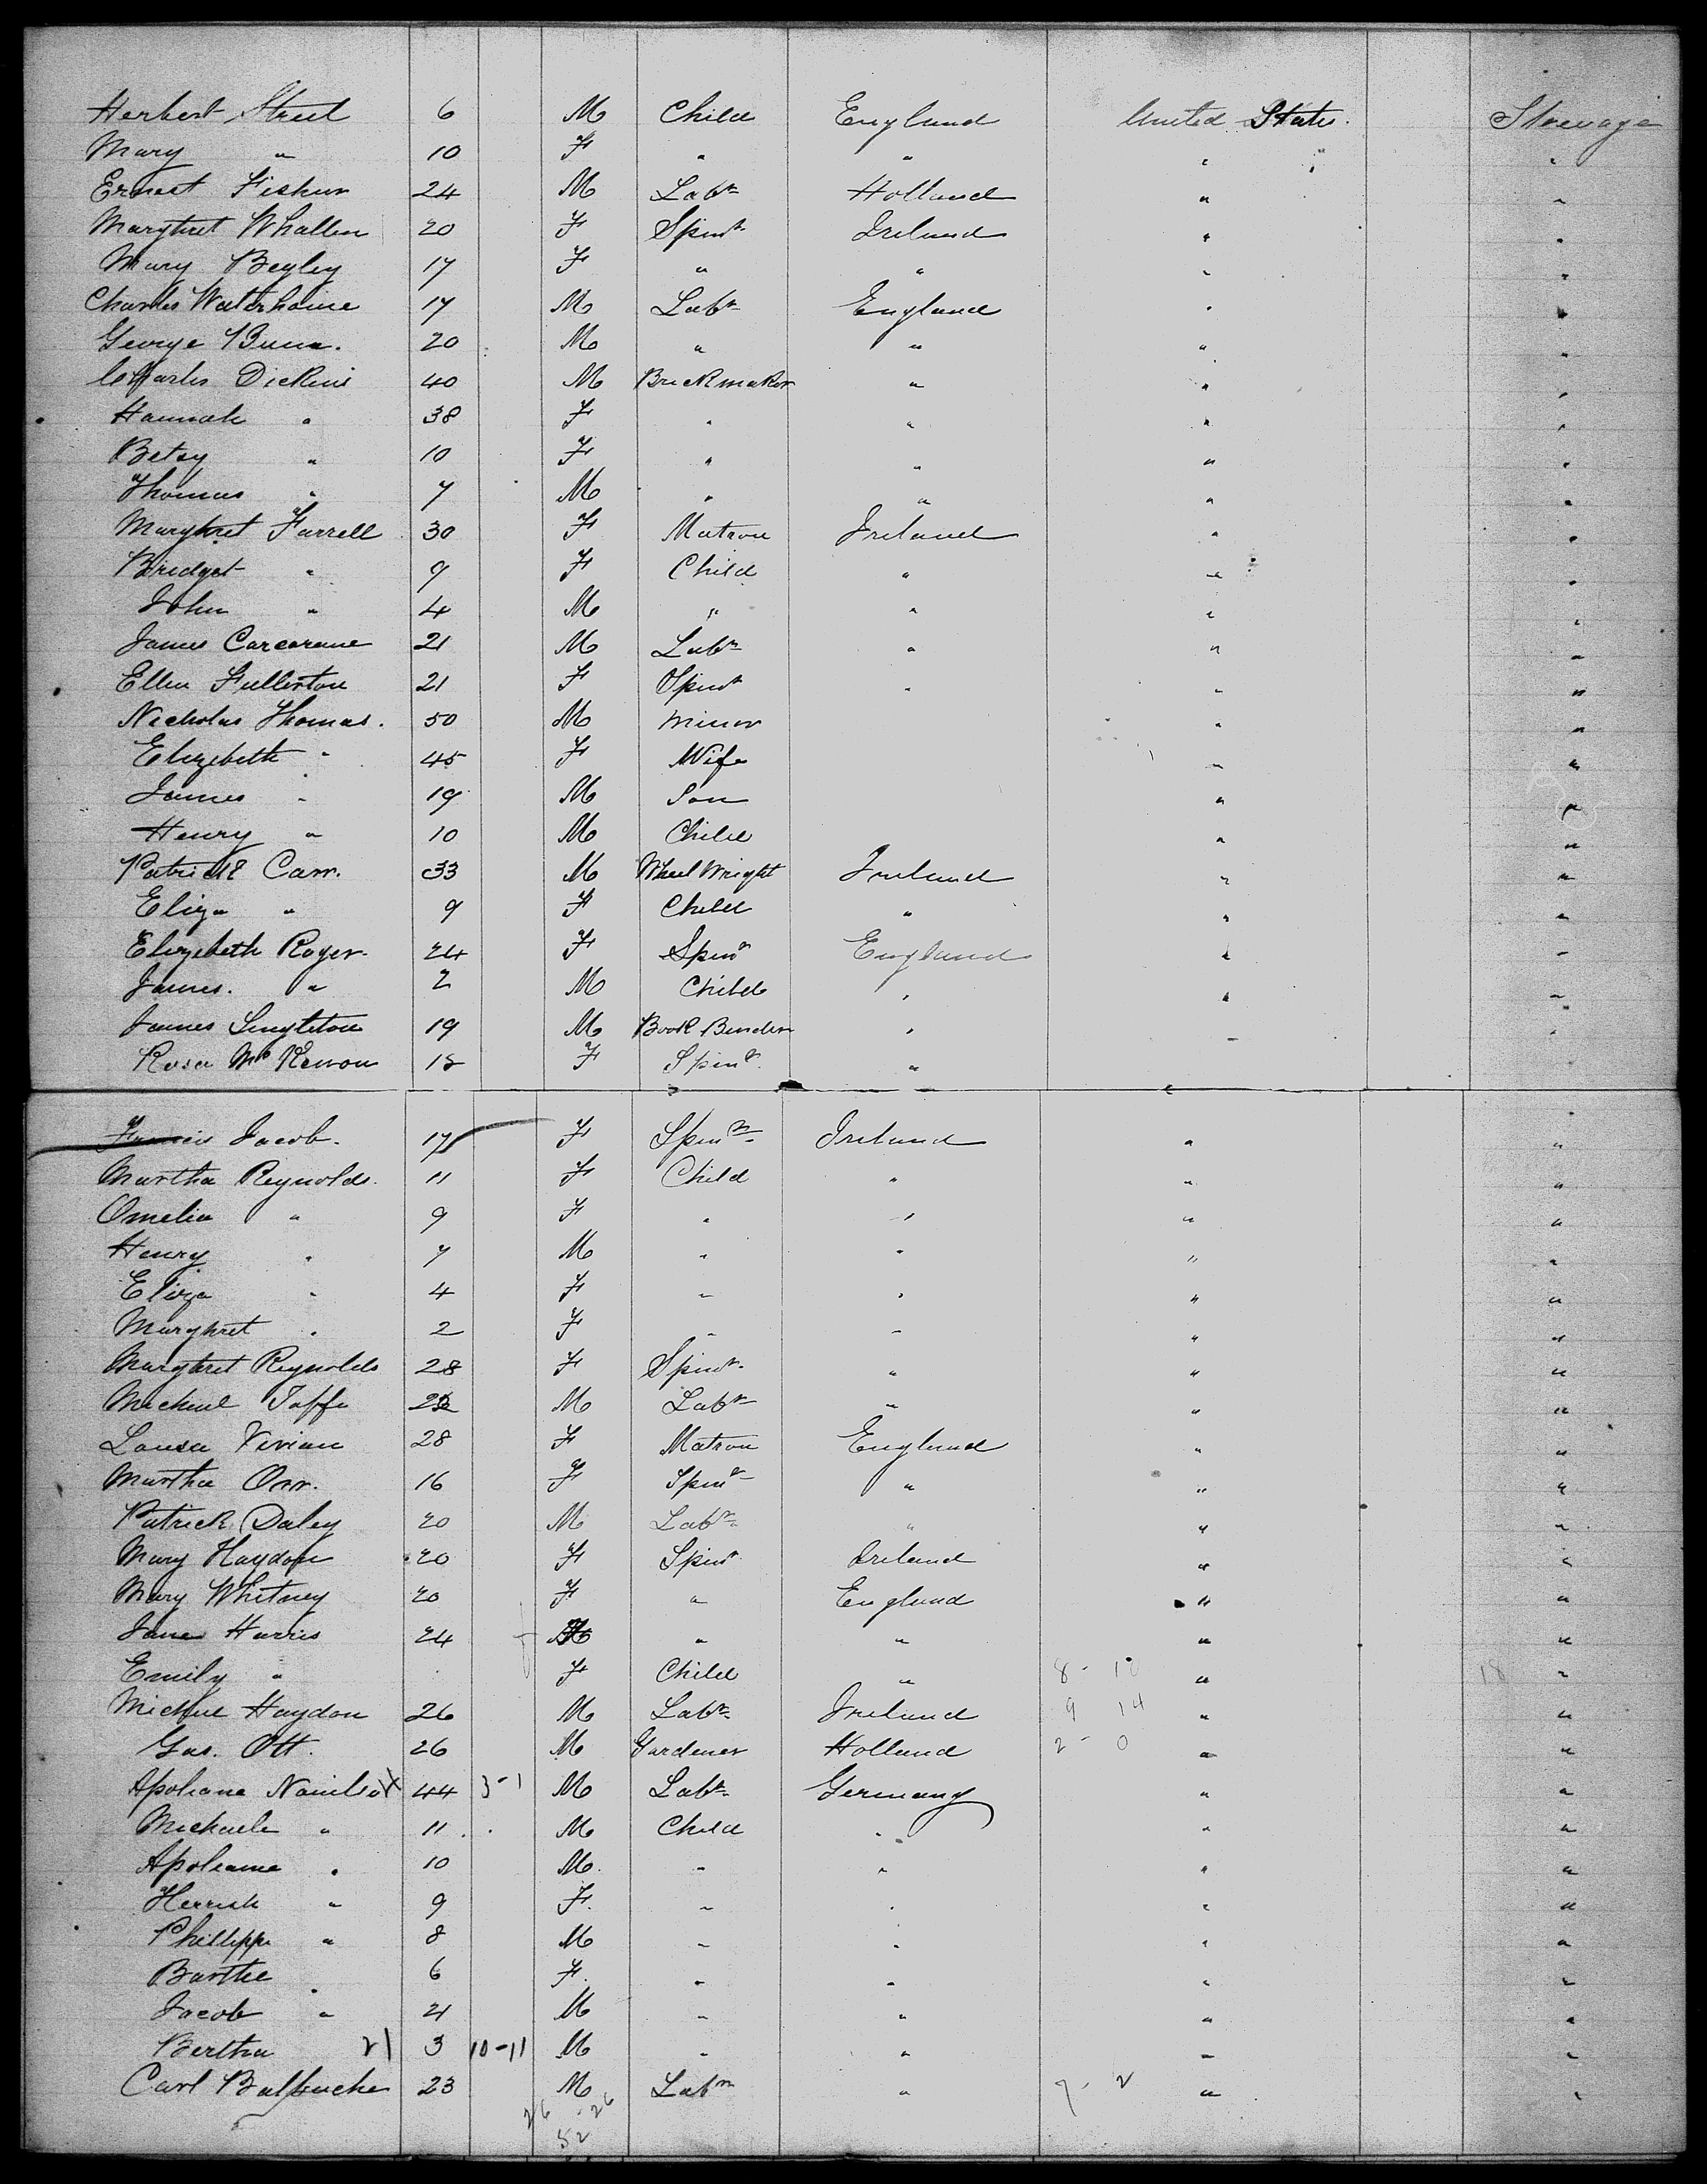 Herbert Street 6 M Child England United States. Steerage
Mary " 10 F " " " "
Ernest Fisher 24 M Labr Holland " "
Marghret Whallen 20 F Spinr Ireland " "
Mary Begley 17 F " " " "
Charles Waterhouse 17 M Labr England " "
George Bunn. 20 M " " " "
Charles Dickins 40 M Brickmaker " " "
Hannah " 38 F " " " "
Betsy " 10 F " " " "
Thomas " 7 M " " " "
Marghret Farrell 30 F Matron Ireland " "
Bridget " 9 F Child " " "
John " 4 M " " " "
James Corcorane 21 M Labr " " "
Ellen Fullerton 21 F Spinr " " "
Nicholas Thomas. 50 M Minor " "
Elizebeth " 45 F Wife " "
James " 19 M Son " "
Henry " 10 M Child " "
Patrick Carr. 33 M Wheel Wright Ireland " "
Eliza " 9 F Child " " "
Elizebeth Roger. 24 F Spinr England " "
James. " 2 M Child " " "
James Singleton 19 M Book Binder " " "
Rosa McKewon 18 F Spinr. " "
Francis Jacob. 17 F Spinr Ireland " "
Martha Reynolds. 11 F Child " " "
Omelia " 9 F " " " "
Henry " 7 M " " " "
Eliza " 4 F " " " "
Marghret " 2 F " " " "
Marghret Reynolds 28 F Spinr. " " "
Micheal Taffe 22 M Labr " " "
Lousa Vivian 28 F Matron England " "
Martha Orr. 16 F Spinr " " "
Patrick Daley 20 M Labr. " " "
Mary Haydon 20 F Spinr Ireland " "
Mary Whitney 20 F " England " "
Jane Harris 24 F " " " "
Emily " F Child " 8 - 18 " 18 "
Micheal Haydon 26 M Labr. Ireland 9 14 " "
Gus. Ott. 26 M Gardener Holland 2 - 0 " "
Apoliane X 44 3-1 M Labr. Germany " "
Michaele " 11 M Child " " "
Apoliame " 10 M. " " " "
Herrich " 9 F. " " " "
Phillippe " 8 M " " " "
Barthe " 6 F. " " " "
Jacob " 4 M " " " "
Bertha 21 3 10-11 M " " " "
Carl 23 M Labr " 7 - 2 " "
26 - 26
52